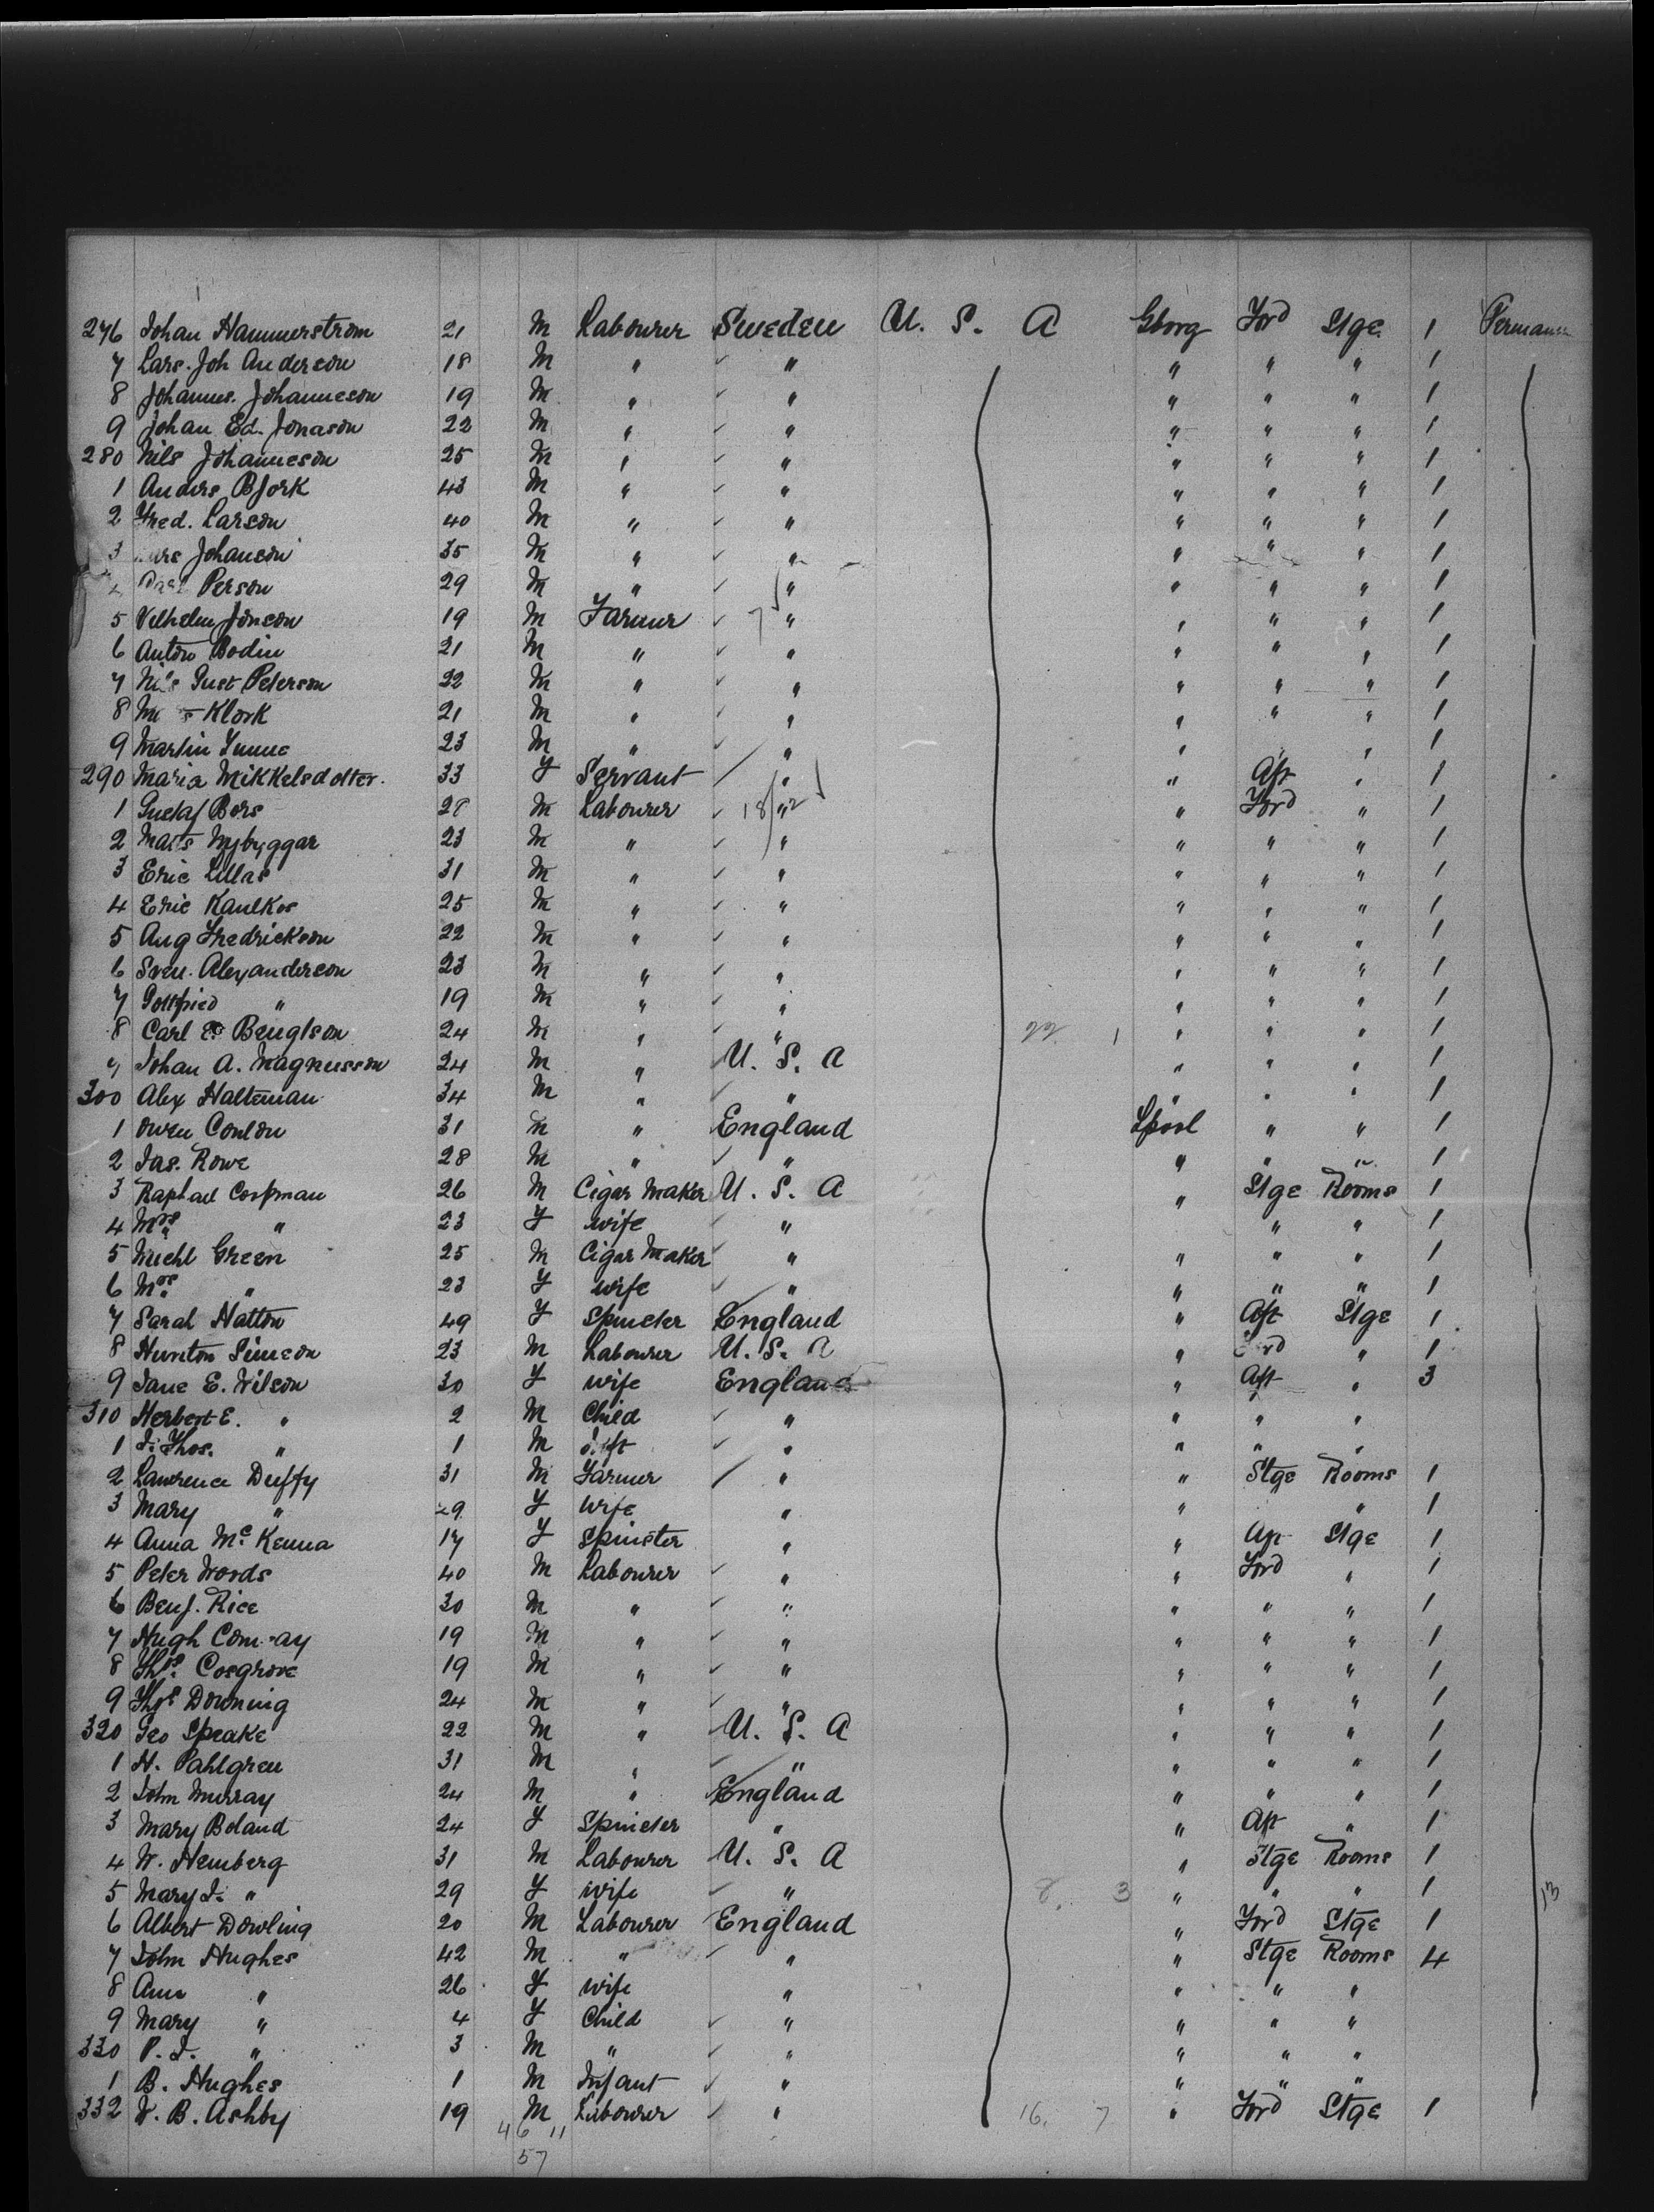 276 Johan Hammerstrom 21 M Labourer Sweden U. S. A Gborg Ford Stge. 1
7 Lars. Joh Anderson 18 M " " " " " 1
8 Johannes. Johanneson 19 M " " " " " 1
9 Johan Ed. Jonason 22 M " " " " " 1
280 Nils Johanneson 25 M " " " " " 1
1 Anders Bjork 43 M " " " " " 1
2 Fred. Larson 40 M " " " " " 1
3 Johanson 35 M " " " " " 1
Person 29 M " " " " " 1
5 Vilhelm Jonson 19 M Farmer 7 " " " " 1
6 Anton Bodin 21 M " " " " " 1
7 Nils Gust Peterson 22 M " " " " " 1
8 Klork 21 M " " " " " 1
9 Martin 23 M " " " " 1
290 Maria Mikkelsdotter. 33 F Servant " " Aft " 1
1 Gustaf Bors M Labourer 18 " 2 " Ford " 1
2 Mats Nybyggar 23 M " " " " " 1
3 Eric Lillas 31 M " " " " " 1
4 Eric Kaulkos 25 M " " " " " 1
5 Aug Fredrickson 22 M " " " " " 1
6 Sven. Alexanderson 23 M " " " " " 1
7 Gottfried " 19 M " " " " " 1
8 Carl E. Bengtson 24 M " " 22 1 " " " 1
9 Johan A. Magnusson 24 M " U. S. A " " " 1
300 Alex Halteman 34 M " " " " " 1
1 Owen Conlon 31 M " England Lpool " " 1
2 Jas. Rowe 28 M " " " " " 1
3 Raphael Corpman 26 M Cigar Maker U. S. A " Stge Rooms 1
4 Mrs " 23 F wife " " " 1
5 Michl Green 25 M Cigar Maker " " " " 1
6 Mrs " 23 F wife " " " " 1
7 Sarah Hatton 49 F Spinster England " Aft Stge 1
8 Hunton Simeon 23 M Labourer U. S. A " Ford " 1
9 Jane E. Wilson 30 F wife England " Aft " 3
310 Herbert E. " 2 M Child " " " "
1 J. Thos. " 1 M " " " "
2 Lawrence Duffy 31 M Farmer " " Stge Rooms 1
3 Mary " 29 F wife " " " 1
4 Anna McKenna 17 F Spinster " " Aft Stge 1
5 Peter Woods 40 M Labourer " " Ford " 1
6 Benj. Rice 30 M " " " " " 1
7 Hugh 19 M " " " " " 1
8 Thos. Cosgrove 19 M " " " " " 1
9 Thos Downing 24 M " " " " " 1
320 Geo Speake 22 M " U. S. A " " " 1
1 H. Pahlgren 31 M " " " " " 1
2 John Murray 24 M " England " " " 1
3 Mary Boland 24 F Spinster " " Aft " 1
4 W. Hemberg 31 M Labourer U. S. A " Stge Rooms 1
5 Mary J. " 29 F wife " 8 3 " " " 1
6 Albert Dowling 20 M Labourer England " Ford Stge 1
7 John Hughes 42 M " " " Stge Rooms 4
8 Ann " 26 F wife " " " "
9 Mary " 4 F Child " " " "
330 P. J. " 3 M " " " " "
1 B. Hughes 1 M Infant " " " "
332 W. B. Ashby 19 M Labourer " 16. 7 " Ford Stge 1
46 11
57